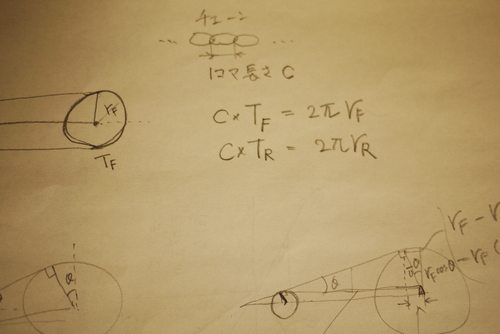 チェーン
... ...
1コマ長さ C
r_F
C×T_F = 2πr_F
C×T_R = 2πr_R
T_F
r_F - r
θ
θ
θ
r_F cosθ - r_F (